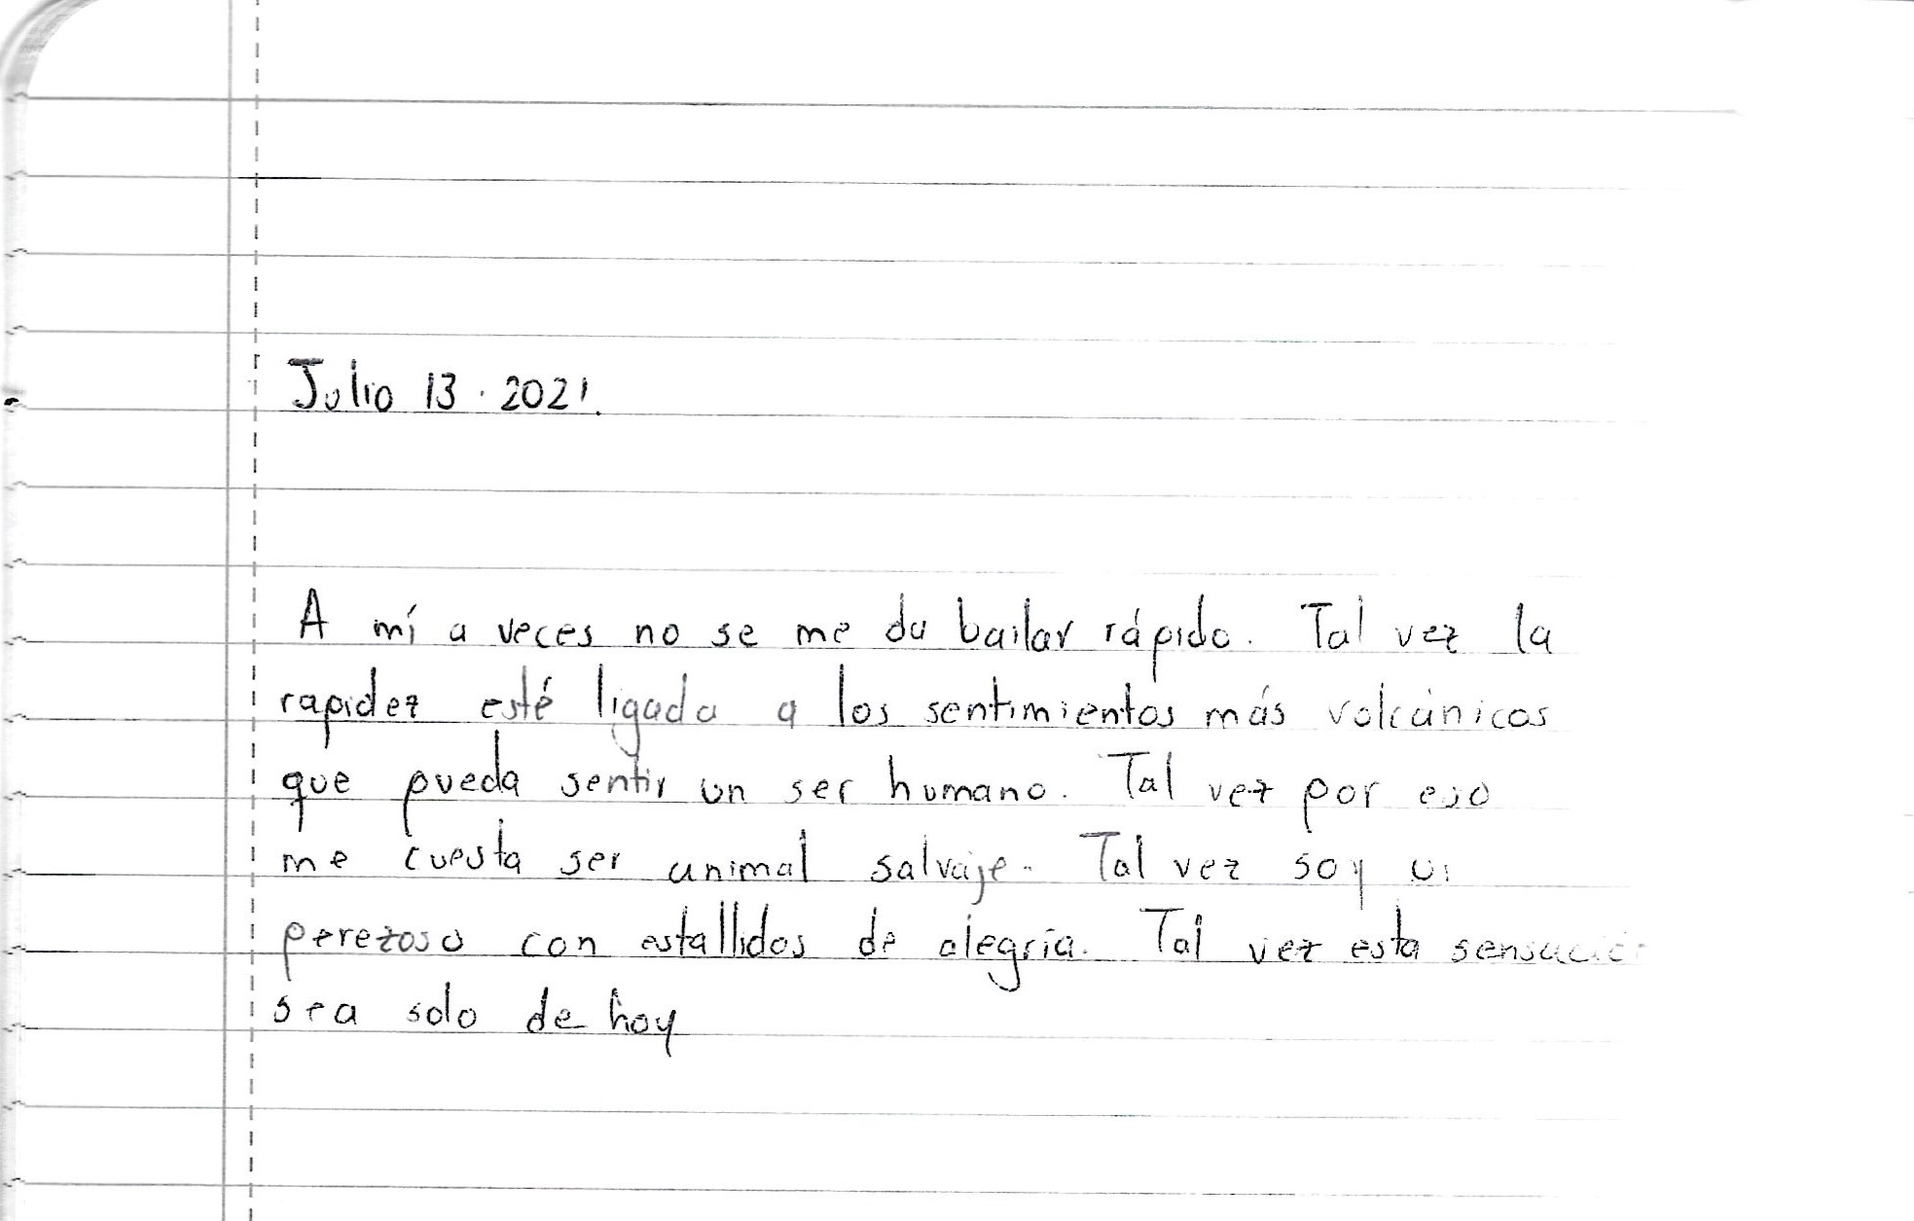 Julio 13. 2021.
A mí a veces no se me da bailar rápido. Tal vez la
rapidez esté ligada a los sentimientos más volcánicos
que pueda sentir un ser humano. Tal vez por eso
me cuesta ser animal salvaje. Tal vez soy un
perezoso con estallidos de alegría. Tal vez esta sensación
sea solo de hoy